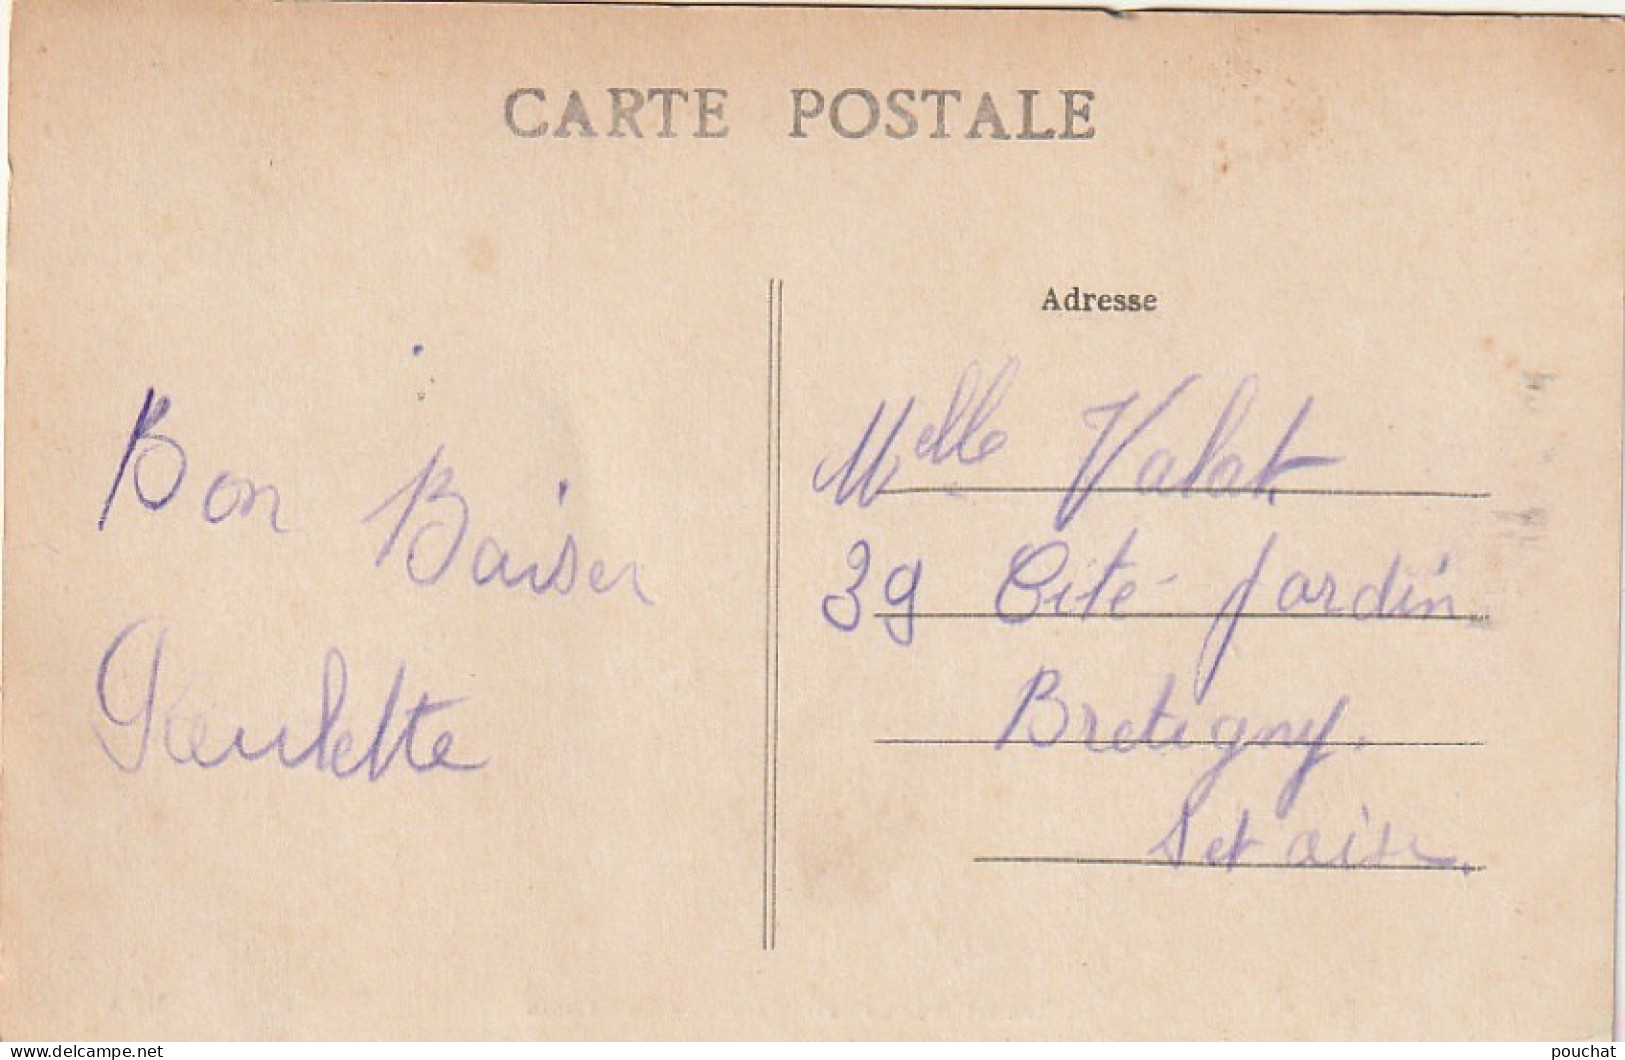 CARTE POSTALE
Adresse
Bon Baiser
Paulette
Melle Valat
39 Cité Jardin
Bretigny.
S et oise.
www.delcampe.net
pouchat